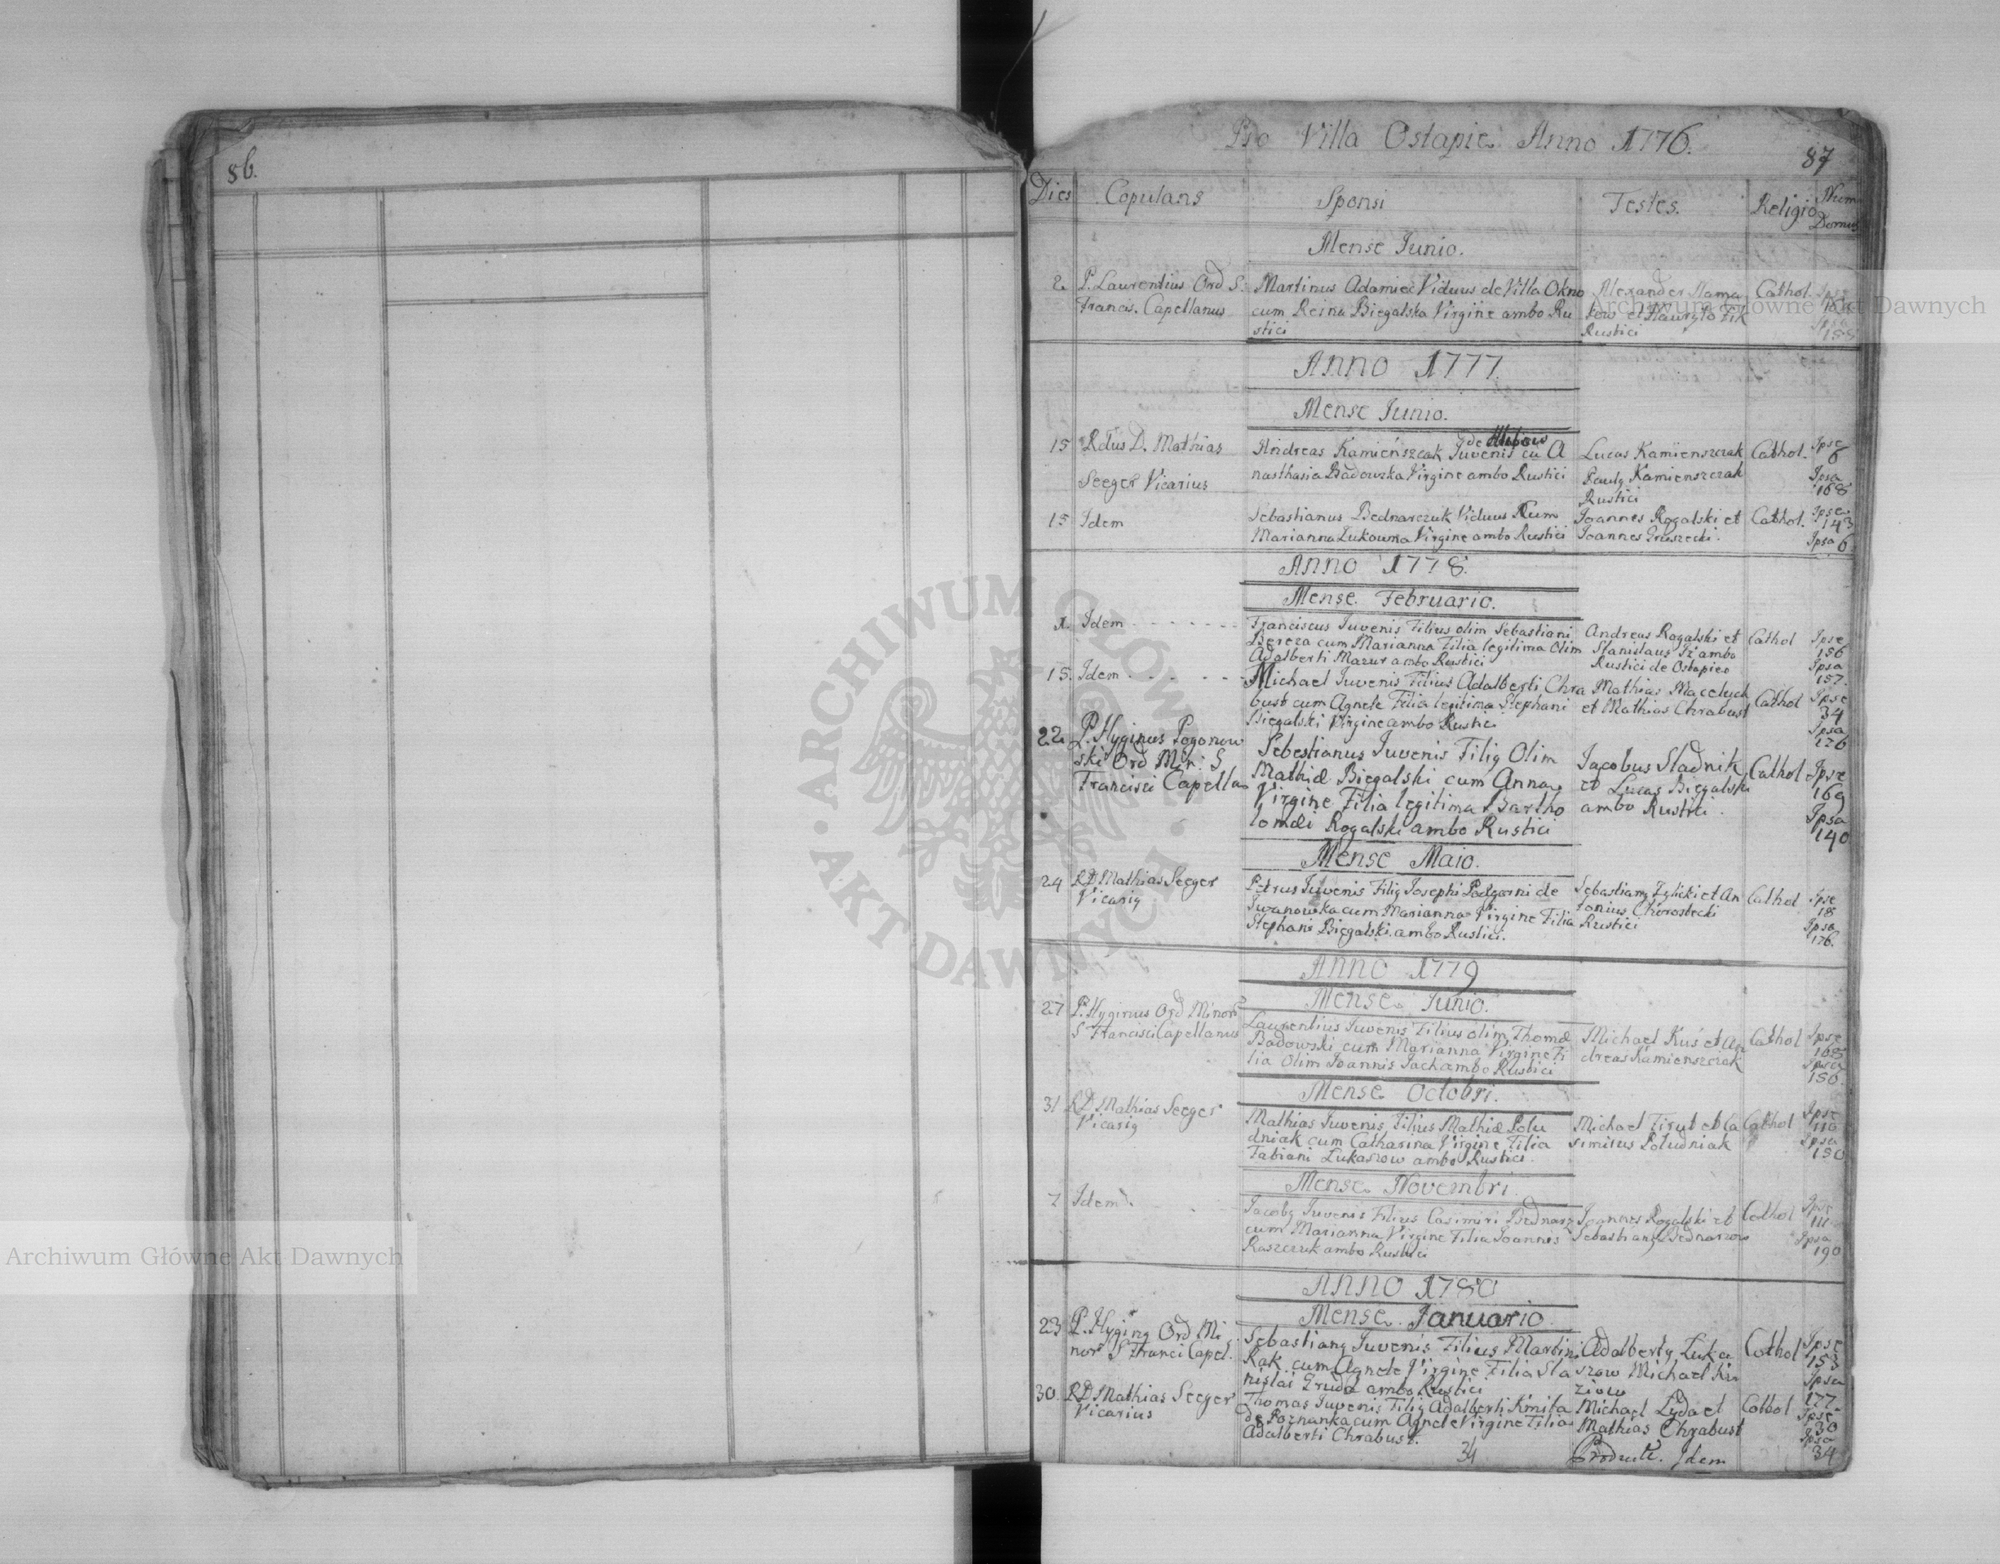 86.
Pro Villa Ostapie Anno 1776.
87
Dies Copulans Sponsi Testes. Religio Num Domus
Mense Junio.
2. P. Laurentius Ord S. Martinus Adamiec Viduus de Villa Okno Alexander Cathol. Ipse
Francis. Capellanus cum Reina Biegalska Virgine ambo Ru
stici Rustici
Anno 1777.
Mense Junio.
15 Rdus D. Mathias Andreas Kamieńszcak Juvenis cu A Lucas Kamienszczak Cathol. Ipse 8
Seeger Vicarius nasthasia Badowska Virgine ambo Rustici Pauly Kamienszczak Ipsa 168
Rustici
15 Idem Sebastianus Bednarczuk Viduus Kum Joannes Rogalski et Cathol. Ipse 143
Marianna Lukowna Virgine ambo Rustici Joannes Gruszecki. Ipsa 6
Anno 1778.
Mense Februario.
1. Idem Franciscus Juvenis Filius olim Sebastiani Andreas Rogalski et Cathol Ipse
Bereza cum Marianna Filia legitima Olim Stanislaus ambo 156
Adalberti Mazur ambo Rustici Rustici de Ostapie Ipsa 157.
15. Idem Michael Juvenis Filius Adalberti Chra Mathias Maceluch Cathol Ipse
bust cum Agnete Filia legitima Stephani et Mathias Chrabust 34
Biegalski Virgine ambo Rustici Ipsa 176
22. P. Hyginus Pogonow Sebestianus Juvenis Filig Olim Jacobus Sladnik Cathol Ipse
ski Ord Min: S Mathiæ Biegalski cum Anna et Lucas Biegalski 169
Francisci Capella Virgine Filia legitima Bartho ambo Rustici. Ipsa
lomæi Rogalski ambo Rustici 140
Mense Maio.
24 RD Mathias Seeger Petrus Juvenis Filig Josephi Podgorni de Sebastiang Zyliski et An Cathol Ipse
Vicarig Iwanowka cum Marianna Virgine Filia tonius Chorostecki 18
Stephani Biegalski ambo Rustici. Rustici Ipsa 176.
Anno 1779
Mense Junio.
27 P. Hyginus Ord Minor Laurentius Juvenis Filius olim Thomæ Michael Kuś et An Cathol Ipse
S Francisci Capellanus Badowski cum Marianna Virgine Fi dreas Kamienszczak 168
lia Olim Joannis Jach ambo Rustici Ipsa 150.
Mense Octobri.
31 RD Mathias Seeger Mathias Juvenis Filius Mathiæ Polu Michael Firut et Ca Cathol Ipse 110
Vicarig dniak cum Catharina Virgine Filia simirus Poludniak Ipsa
Fabiani Lukaszow ambo Rustici. 150
Mense Novembri.
7 Idem. Jacobg Juvenis Filius Casimiri Bednarz Joannes Rogalski et Cathol Ipse 111
cum Marianna Virgine Filia Joannis Sebastiang Bednarzow Ipsa
Raszczuk ambo Rustici 190
Anno 1780
Mense Januario
23 P. Hyging Ord Mi Sebastiang Juvenis Filius Martini Adalbertg Luka Cathol Ipse
nor S Franci Capel. Kak cum Agnete Virgine Filia Sta szow Michael Ku 153
nislai Gruda ambo Rustici ziow Ipsa 177.
30. RD Mathias Seeger Thomas Juvenis Filig Adalberti Kmita Michael Lyda et Cathol Ipse
Vicarius de Poznanka cum Agnete Virgine Filia Mathias Chrabust 30
Adalberti Chrabust. Ipsa
34 Produxit. Idem 34
ARCHIWUM GŁÓWNE AKT DAWNYCH
Archiwum Główne Akt Dawnych
Archiwum Główne Akt Dawnych